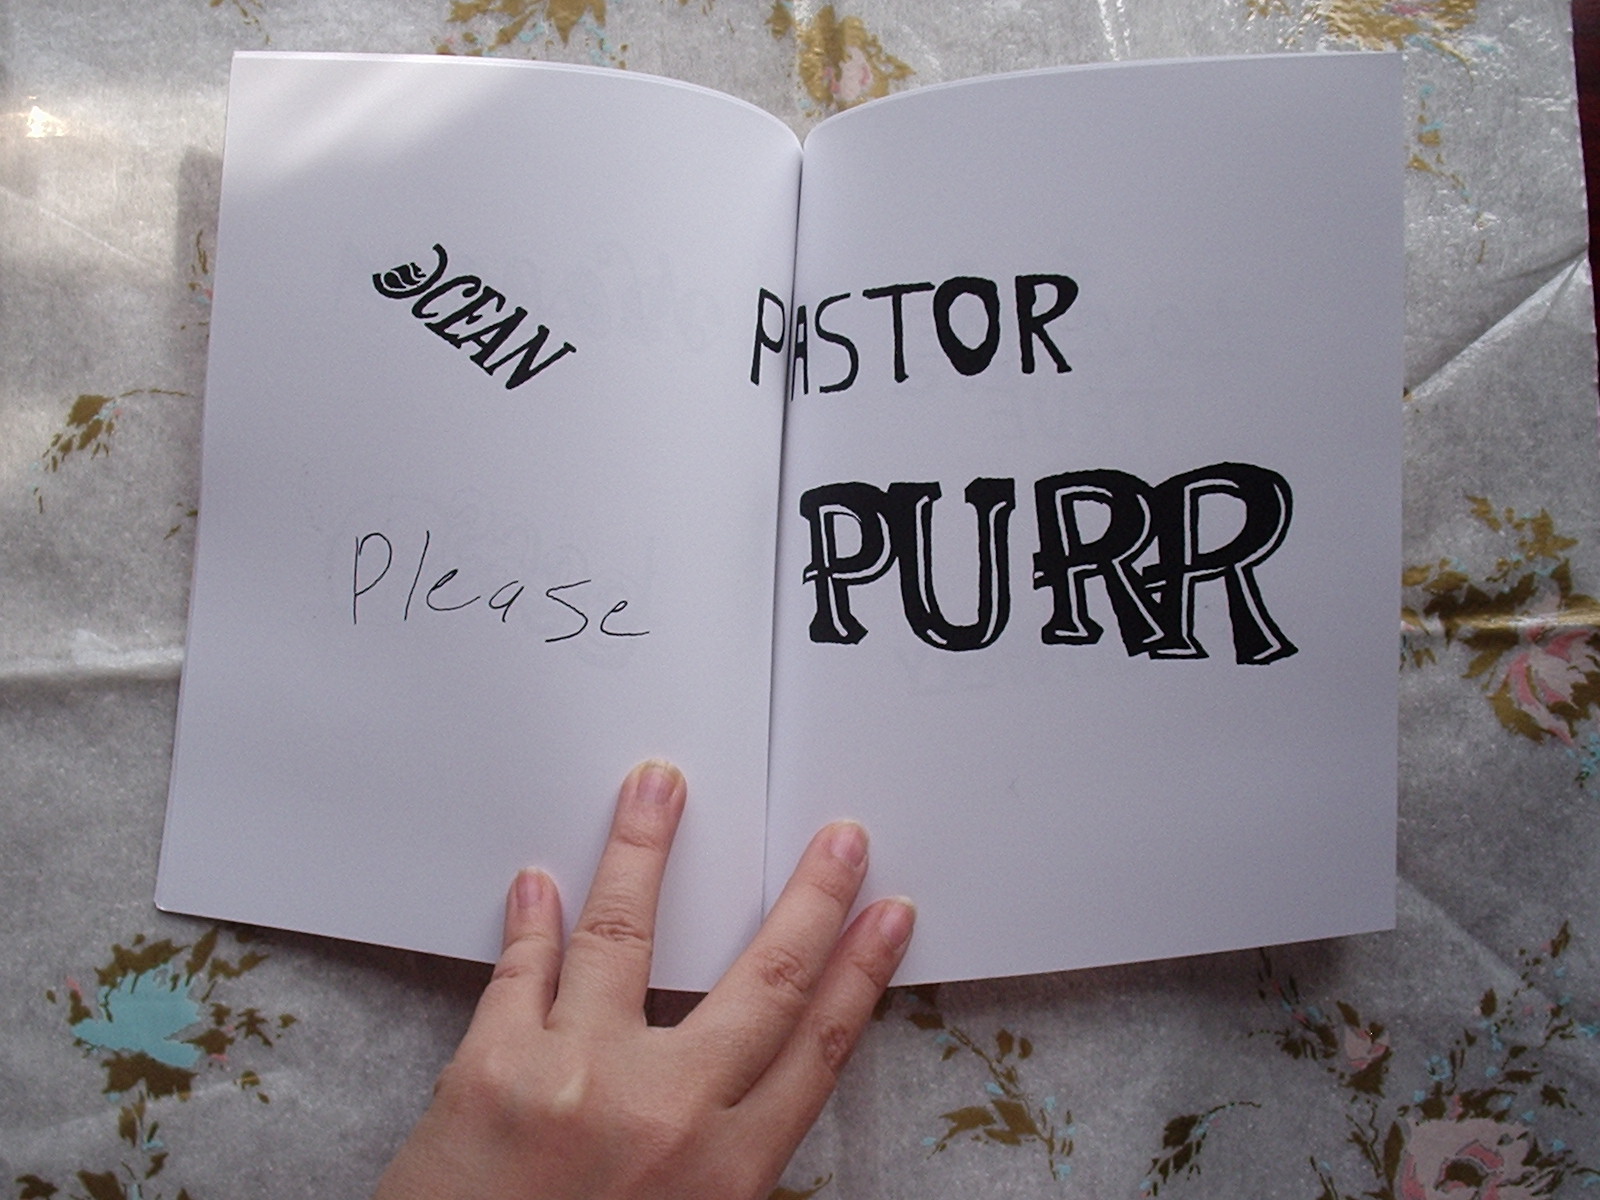 OCEAN
PASTOR
Please
PURR